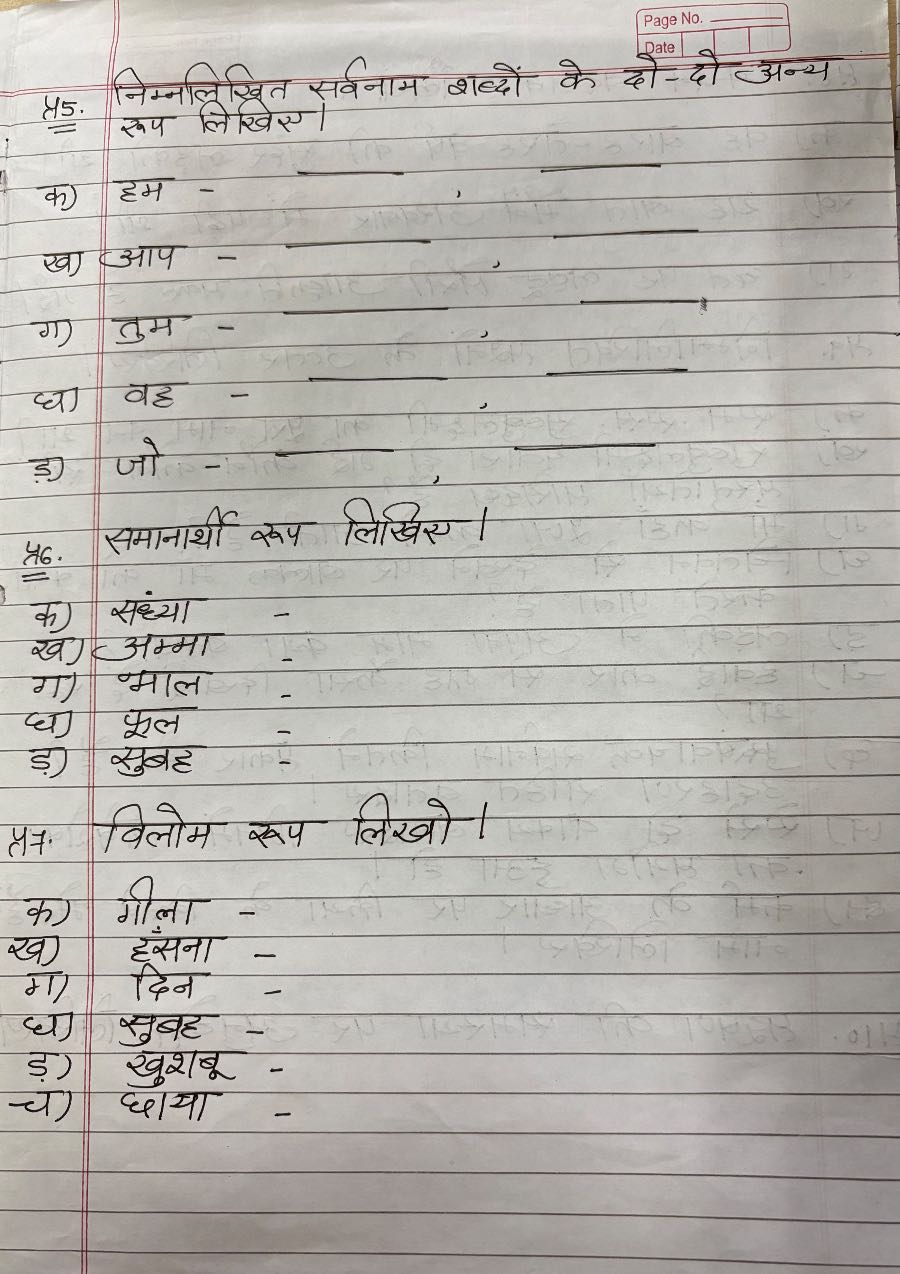 Page No.
Date
प्र5. निम्नलिखित सर्वनाम शब्दों के दो-दो अन्य
रूप लिखिए।
क) हम - ,
ख) आप - ,
ग) तुम - ,
घ) वह - ,
ड़) जो - ,
प्र6. समानार्थी रूप लिखिए।
क) सध्ंया -
ख) अम्मा -
ग) भाल -
घ) फूल -
ड़) सुबह -
प्र7. विलोम रूप लिखो।
क) गीला -
ख) हँसना -
ग) दिन -
घ) सुबह -
ड़) खुशबू -
च) छाया -